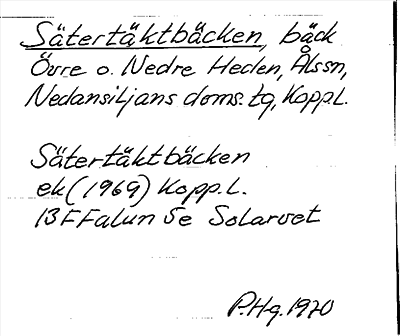 Sätertäktbäcken, bäck
Övre o. Nedre Heden, Ålssn,
Nedansiljans doms. tg, Koppl.
Sätertäktbäcken
ek (1969) Kopp. l.
13F Falun 5e Solarvet
P.Hg. 1970